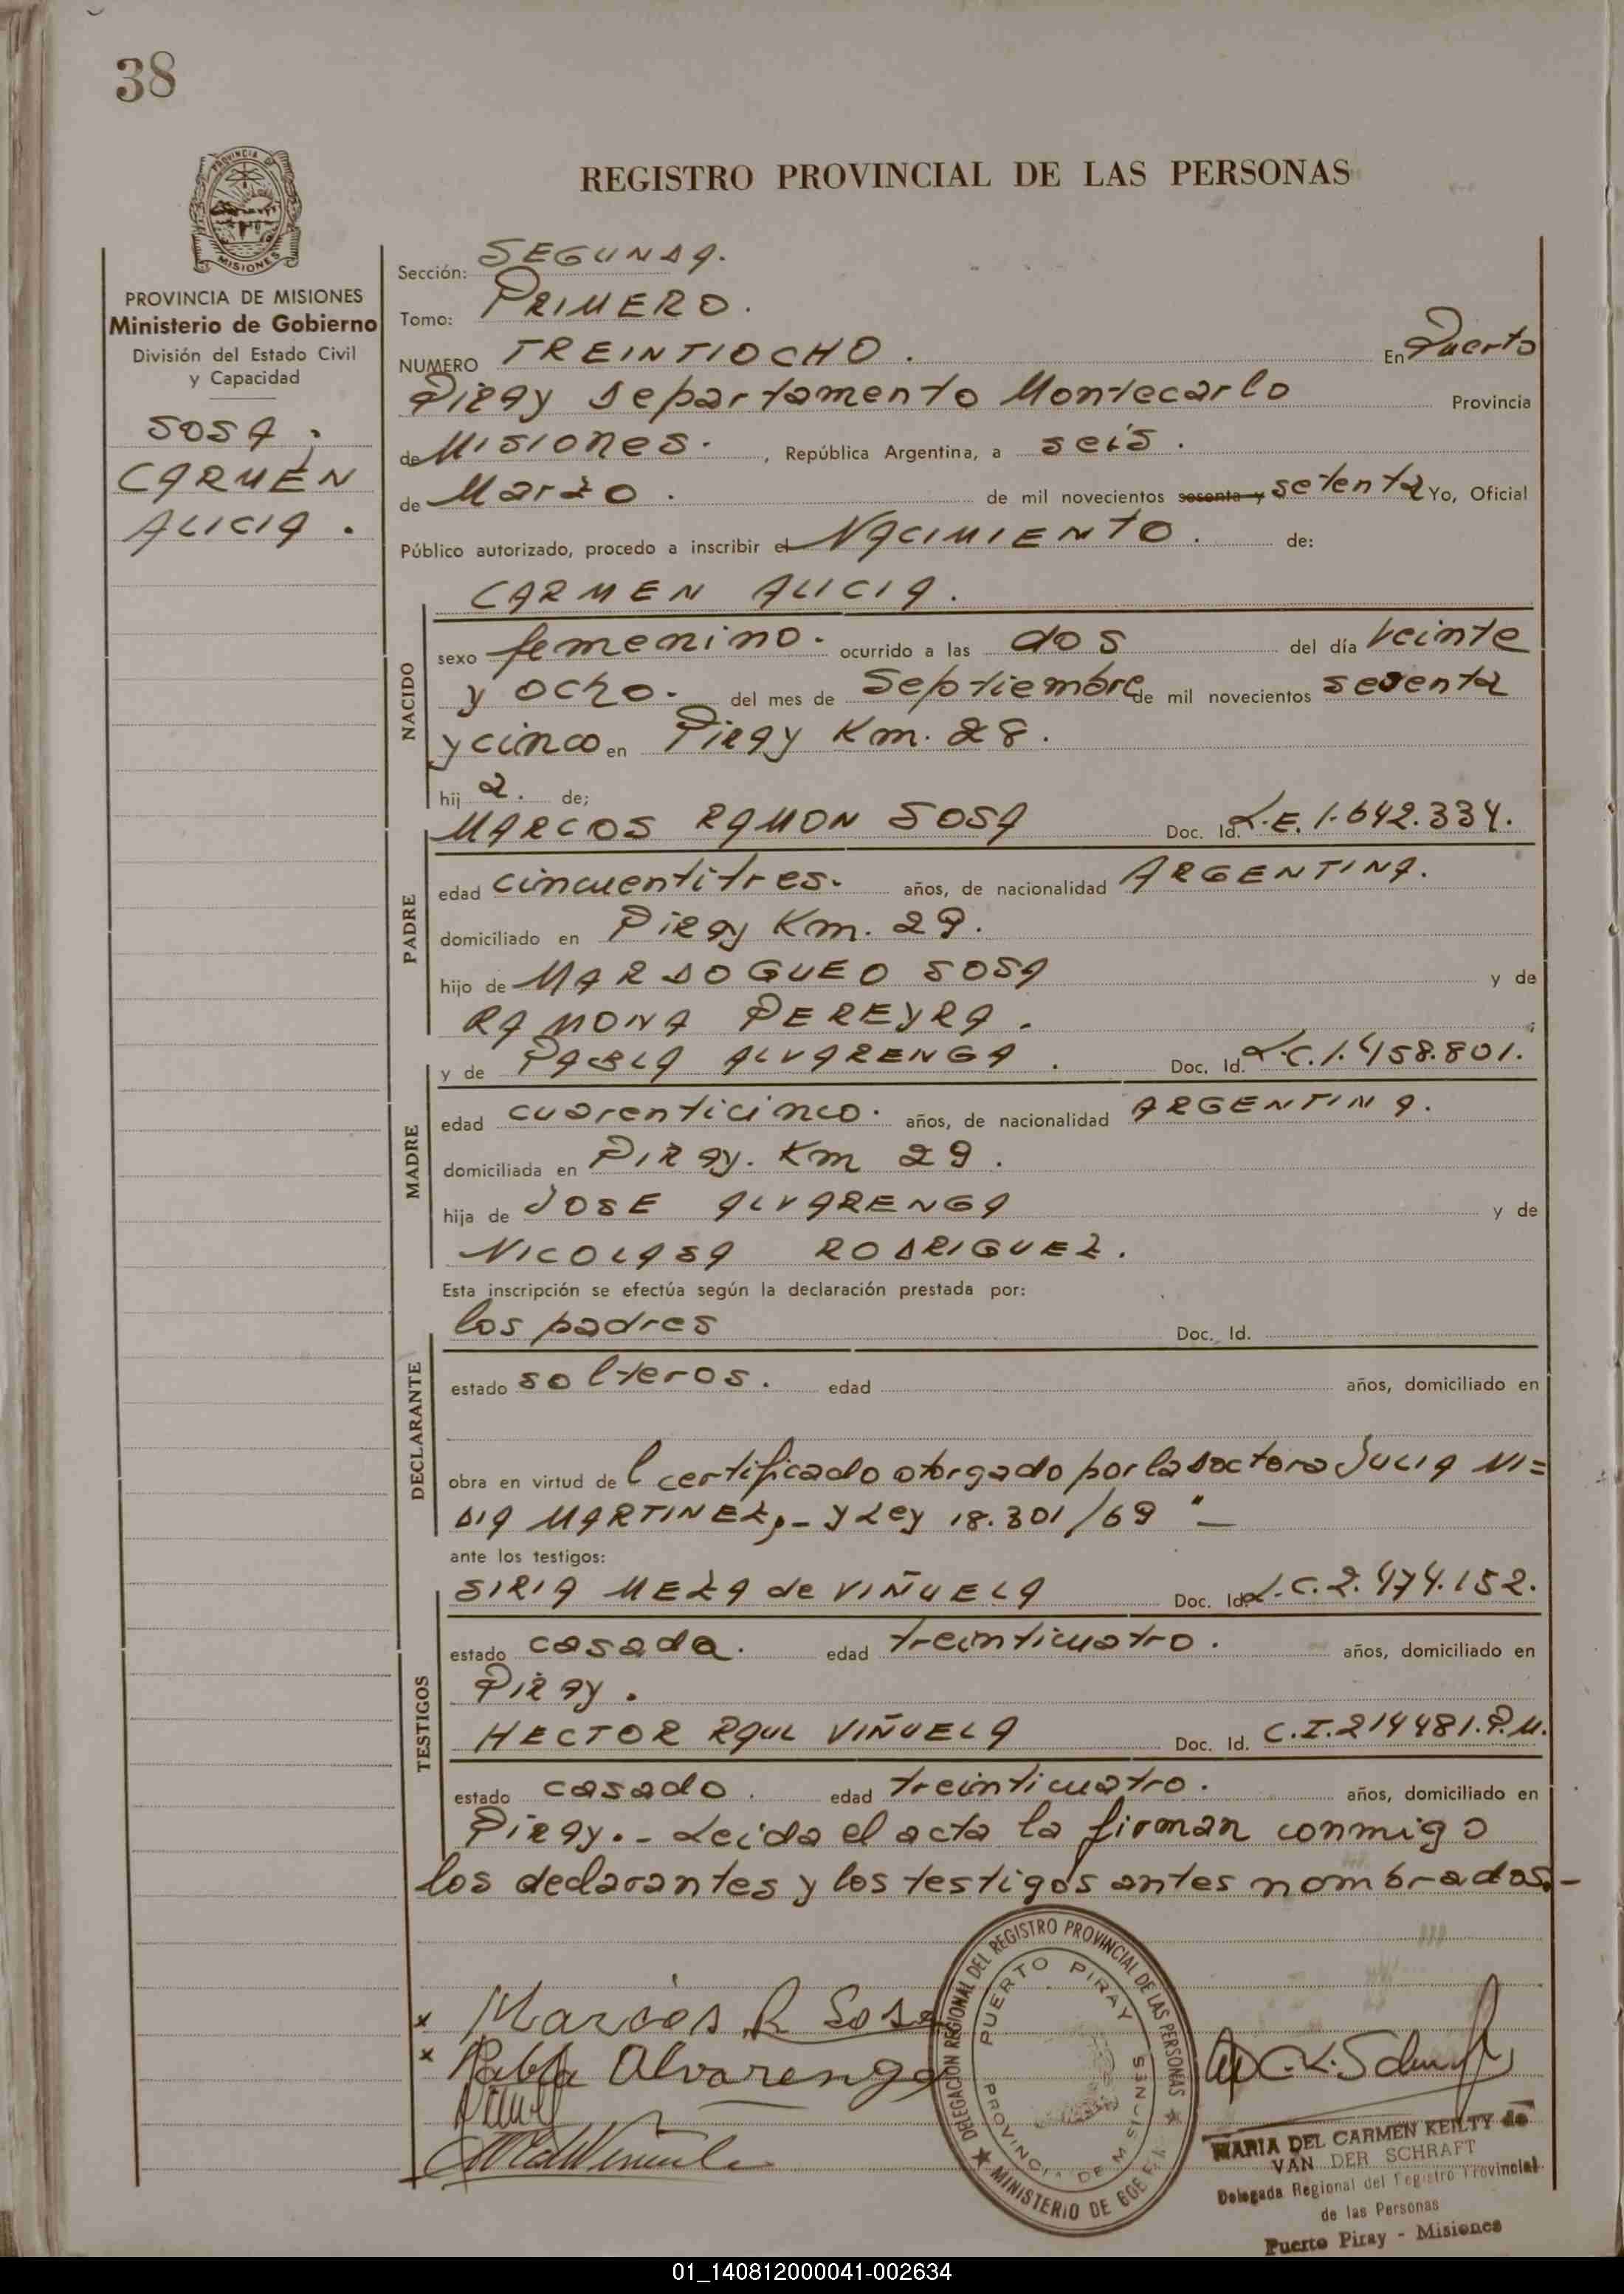 38
PROVINCIA DE
MISIONES
REGISTRO PROVINCIAL DE LAS PERSONAS
PROVINCIA DE MISIONES
Ministerio de Gobierno
División del Estado Civil
y Capacidad
SOSA.
CARMEN
ALICIA.
Sección: SEGUNDA.
Tomo: PRIMERO.
NUMERO TREINTIOCHO. En Puerto
Piray departamento Montecarlo Provincia
de Misiones. , República Argentina, a seis.
de Marzo. de mil novecientos sesenta y setenta Yo, Oficial
Público autorizado, procedo a inscribir el NACIMIENTO. de:
NACIDO
CARMEN ALICIA.
sexo femenino. ocurrido a las dos del día veinte
y ocho. del mes de Septiembre de mil novecientos sesenta
y cinco en Piray Km. 28.
hij a. de;
PADRE
MARCOS RAMON SOSA Doc. Id. L.E. 1.642.334.
edad cincuentitres. años, de nacionalidad ARGENTINA.
domiciliado en Piray Km. 29.
hijo de MARDOGUEO SOSA y de
RAMONA PEREYRA.
MADRE
y de PABLA ALVARENGA. Doc. Id. L.C. 1.458.801.
edad cuarenticinco. años, de nacionalidad ARGENTINA.
domiciliada en Piray. Km 29.
hija de JOSE ALVARENGA y de
NICOLASA RODRIGUEZ.
Esta inscripción se efectúa según la declaración prestada por:
DECLARANTE
los padres Doc. Id.
estado solteros. edad años, domiciliado en
obra en virtud de l certificado otorgado por la doctora JULIA NI=
DIA MARTINEZ,- y Ley 18.301/69 "-
ante los testigos:
TESTIGOS
SIRIA MEZA de VIÑUELA Doc. Id. L.C. 2.474.152.
estado casada. edad treinticuatro. años, domiciliado en
Piray.
HECTOR RAUL VIÑUELA Doc. Id. C.I. 214481.P.M.
estado casado. edad treinticuatro. años, domiciliado en
Piray.- Leida el acta la firman conmigo
los declarantes y los testigos antes nombrados.-
x Marcos R Sosa
x Pabla Alvarenga
DELEGACION REGIONAL DEL REGISTRO PROVINCIAL DE LAS PERSONAS
PUERTO PIRAY
PROVINCIA DE MISIONES
MINISTERIO DE
MARIA DEL CARMEN KEILTY de
VAN DER SCHRAFT
Delegada Regional del Registro Provincial
de las Personas
Puerto Piray - Misiones
01_140812000041-002634